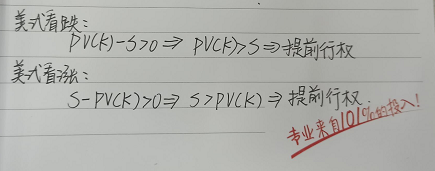 美式看跌：
PV(K)-S>0⇒ PV(K)>S⇒提前行权
美式看涨：
S-PV(K)>0⇒ S>PV(K)⇒ 提前行权.
专业来自101%的投入!